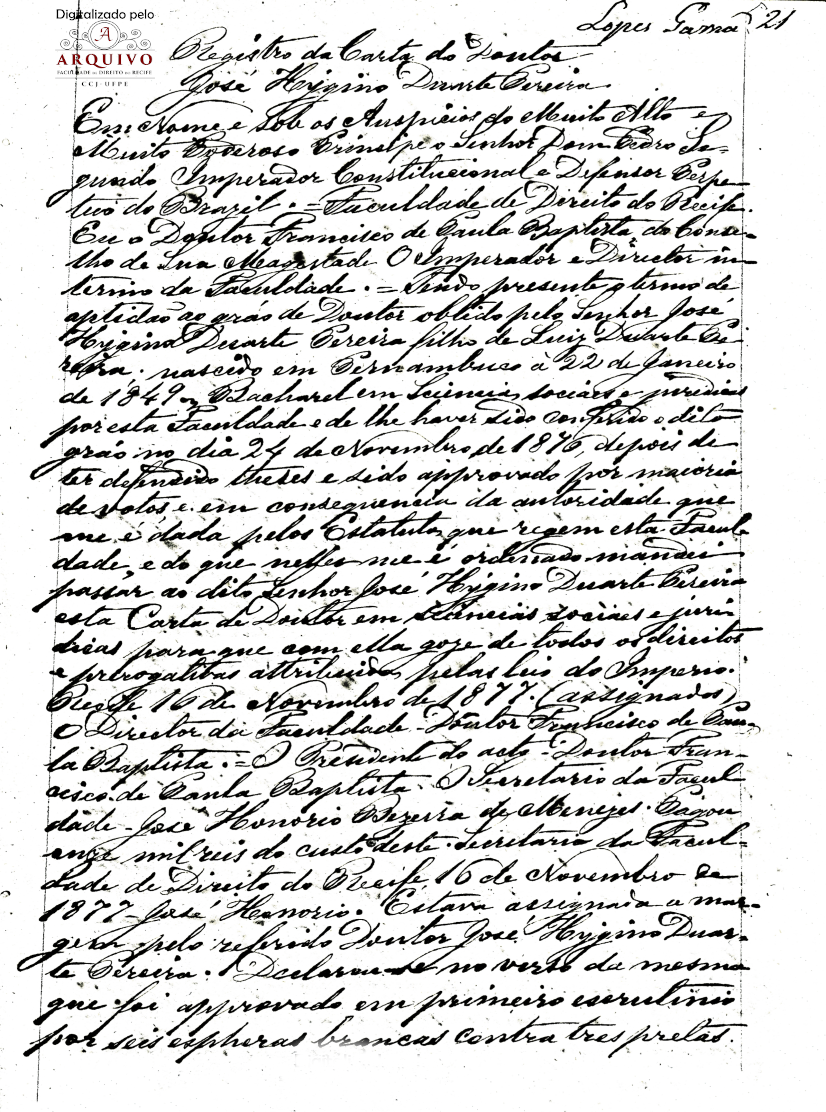 Digitalizado pelo
A
ARQUIVO
FACULDADE DE DIREITO DO RECIFE
CCJ-UFPE
Lopes Gama 21
Registro da Carta do Doutor
José Hygino Duarte Pereira.
Em Nome e sob os Auspicios do Muito Alto e
Muito Poderoso Principe o Senhor Dom Pedro Se-
gundo Imperador Constitucional e Defensor Perpe-
tuo do Brazil. = Faculdade de Direito do Recife.
Eu o Doutor Francisco de Paula Baptista do Conse-
lho de Sua Magestade O Imperador e Director in-
terino da Faculdade. = Tendo presente o termo de
aptidão ao gráo de Doutor obtido pelo Senhor José
Hygino Duarte Pereira filho de Luiz Duarte Pe-
reira. nascido em Pernambuco á 22 de Janeiro
de 1849 Bacharel em Sciencias sociaes e juridicas
por esta Faculdade e de lhe haver sido conferido o dito
gráo no dia 24 de Novembro de 1876, depois de
ter defendido theses e sido approvado por maioria
de votos e em consequencia da autoridade que
me é dada pelos Estatutos que regem esta Facul
dade, e do que nelles me é ordenado mandei
passar ao dito Senhor José Hygino Duarte Pereira
esta Carta de Doutor em sciencias sociaes e juri
dicas para que com ella goze de todos os direitos
e prerogativas attribuidas pelas leis do Imperio.
Recife 16 de Novembro de 1877. (assignados)
O Director da Faculdade - Doutor Francisco de Pau-
la Baptista. = O Presidente do acto - Doutor Fran-
cisco de Paula Baptista. O Secretario da Facul
dade - José Honorio Bezerra de Menezes. Pagou
onze mil reis do custo deste. Secretaria da Facul-
dade de Direito do Recife, 16 de Novembro de
1877 - José Honorio. Estava assignada a mar-
gem pelo referido Doutor José Hygino Duar-
te Pereira. Declarou-se no verso da mesma
que foi approvado em primeiro escrutinio
por seis espheras brancas contra tres pretas.